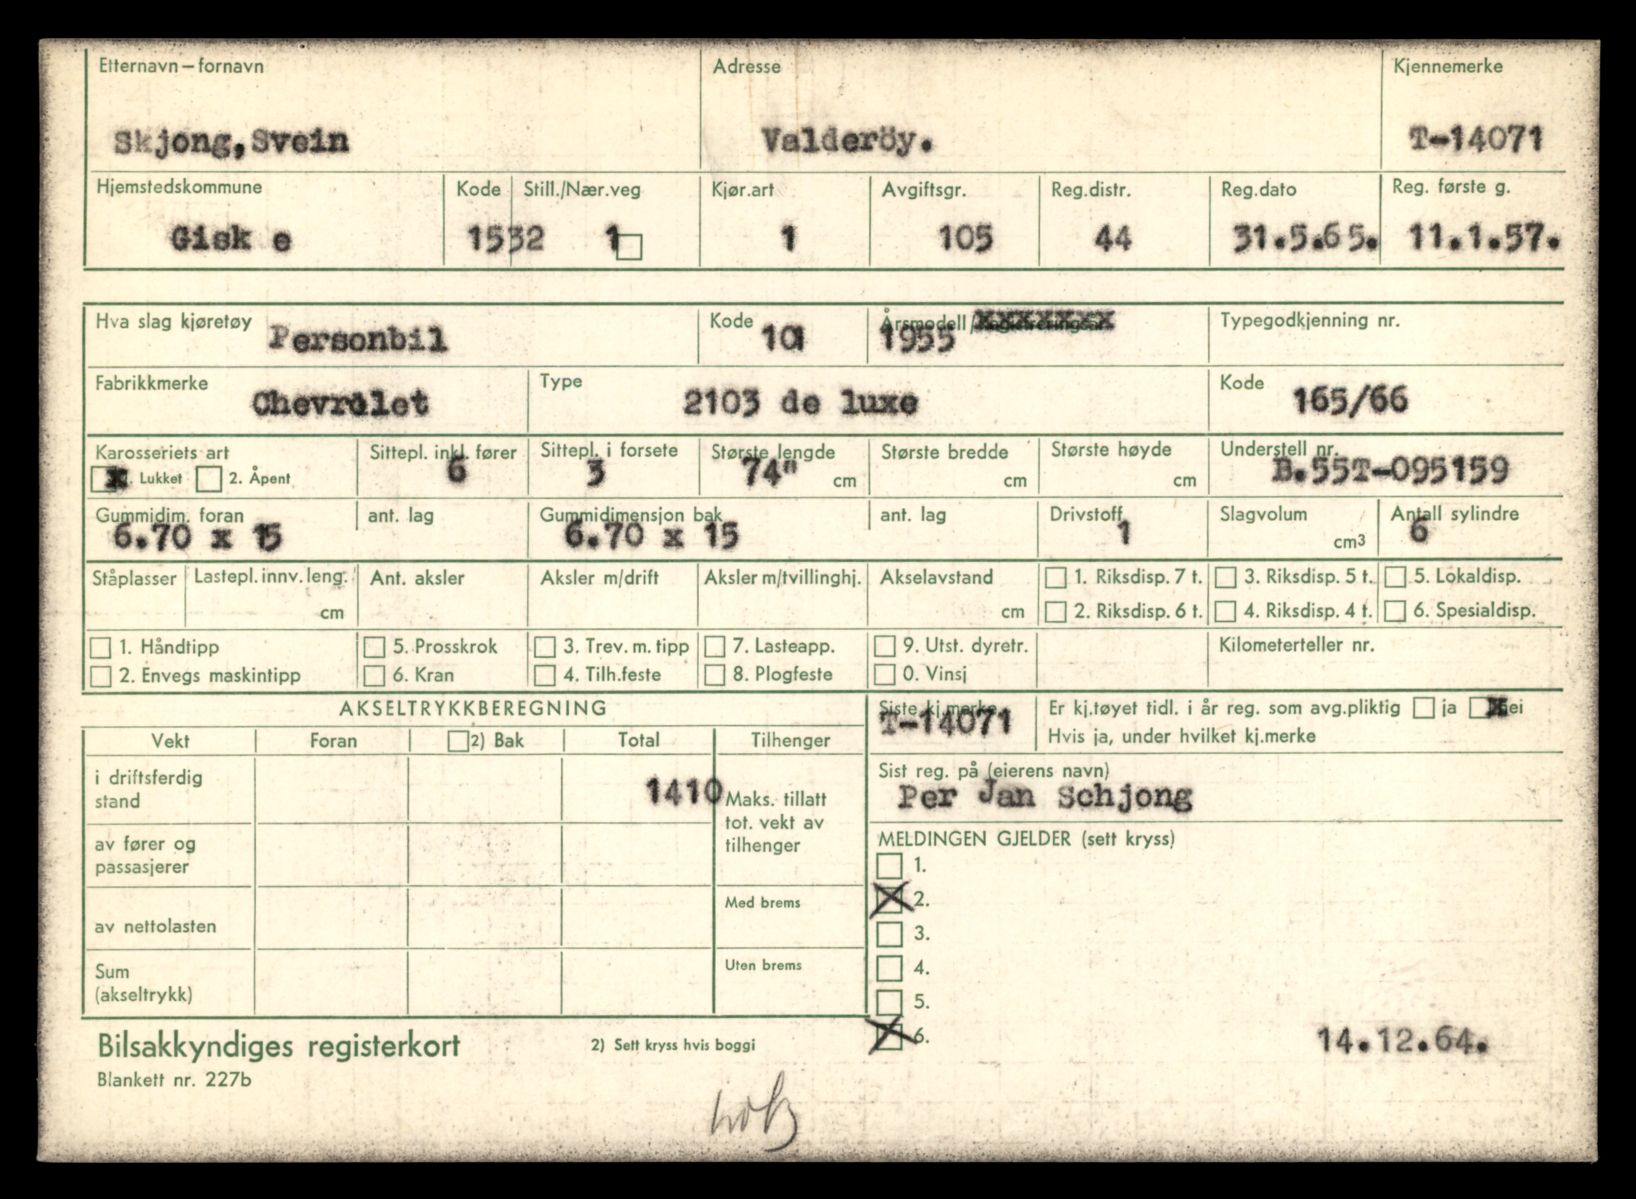 Etternavn – fornavn Adresse Kjennemerke
Skjong, Svein Valderöy. T-14071
Hjemstedskommune Kode Still./Nær.veg Kjør.art Avgiftsgr. Reg.distr. Reg.dato Reg. første g.
Gisk e 1532 1 1 105 44 31.5.65. 11.1.57.
Hva slag kjøretøy Personbil Kode 101 Årsmodell/ xxxxxxx 1955 Typegodkjenning nr.
Fabrikkmerke Chevrolet Type 2103 de luxe Kode 165/66
Karosseriets art Sittepl. inkl. fører Sittepl. i forsete Største lengde Største bredde Største høyde Understell nr.
x Lukket 2. Åpent 6 3 74" cm cm cm B.55T-095159
Gummidim. foran ant. lag Gummidimensjon bak ant. lag Drivstoff Slagvolum Antall sylindre
6.70 x 15 6.70 x 15 1 cm3 6
Ståplasser Lastepl. innv. leng. Ant. aksler Aksler m/drift Aksler m/tvillinghj. Akselavstand 1. Riksdisp. 7 t. 3. Riksdisp. 5 t. 5. Lokaldisp.
cm cm 2. Riksdisp. 6 t. 4. Riksdisp. 4 t. 6. Spesialdisp.
1. Håndtipp 5. Prosskrok 3. Trev. m. tipp 7. Lasteapp. 9. Utst. dyretr. Kilometerteller nr.
2. Envegs maskintipp 6. Kran 4. Tilh.feste 8. Plogfeste 0. Vinsj
AKSELTRYKKBEREGNING Siste kj.merke Er kj.tøyet tidl. i år reg. som avg.pliktig ja x ei
T-14071 Hvis ja, under hvilket kj.merke
Vekt Foran 2) Bak Total Tilhenger
Sist reg. på (eierens navn)
Per Jan Schjong
i driftsferdig
stand 1410
Maks. tillatt
tot. vekt av
tilhenger
av fører og
passasjerer
MELDINGEN GJELDER (sett kryss)
1.
2.
3.
4.
5.
6.
av nettolasten Med brems
Sum
(akseltrykk) Uten brems
14.12.64.
Bilsakkyndiges registerkort 2) Sett kryss hvis boggi
Blankett nr. 227b